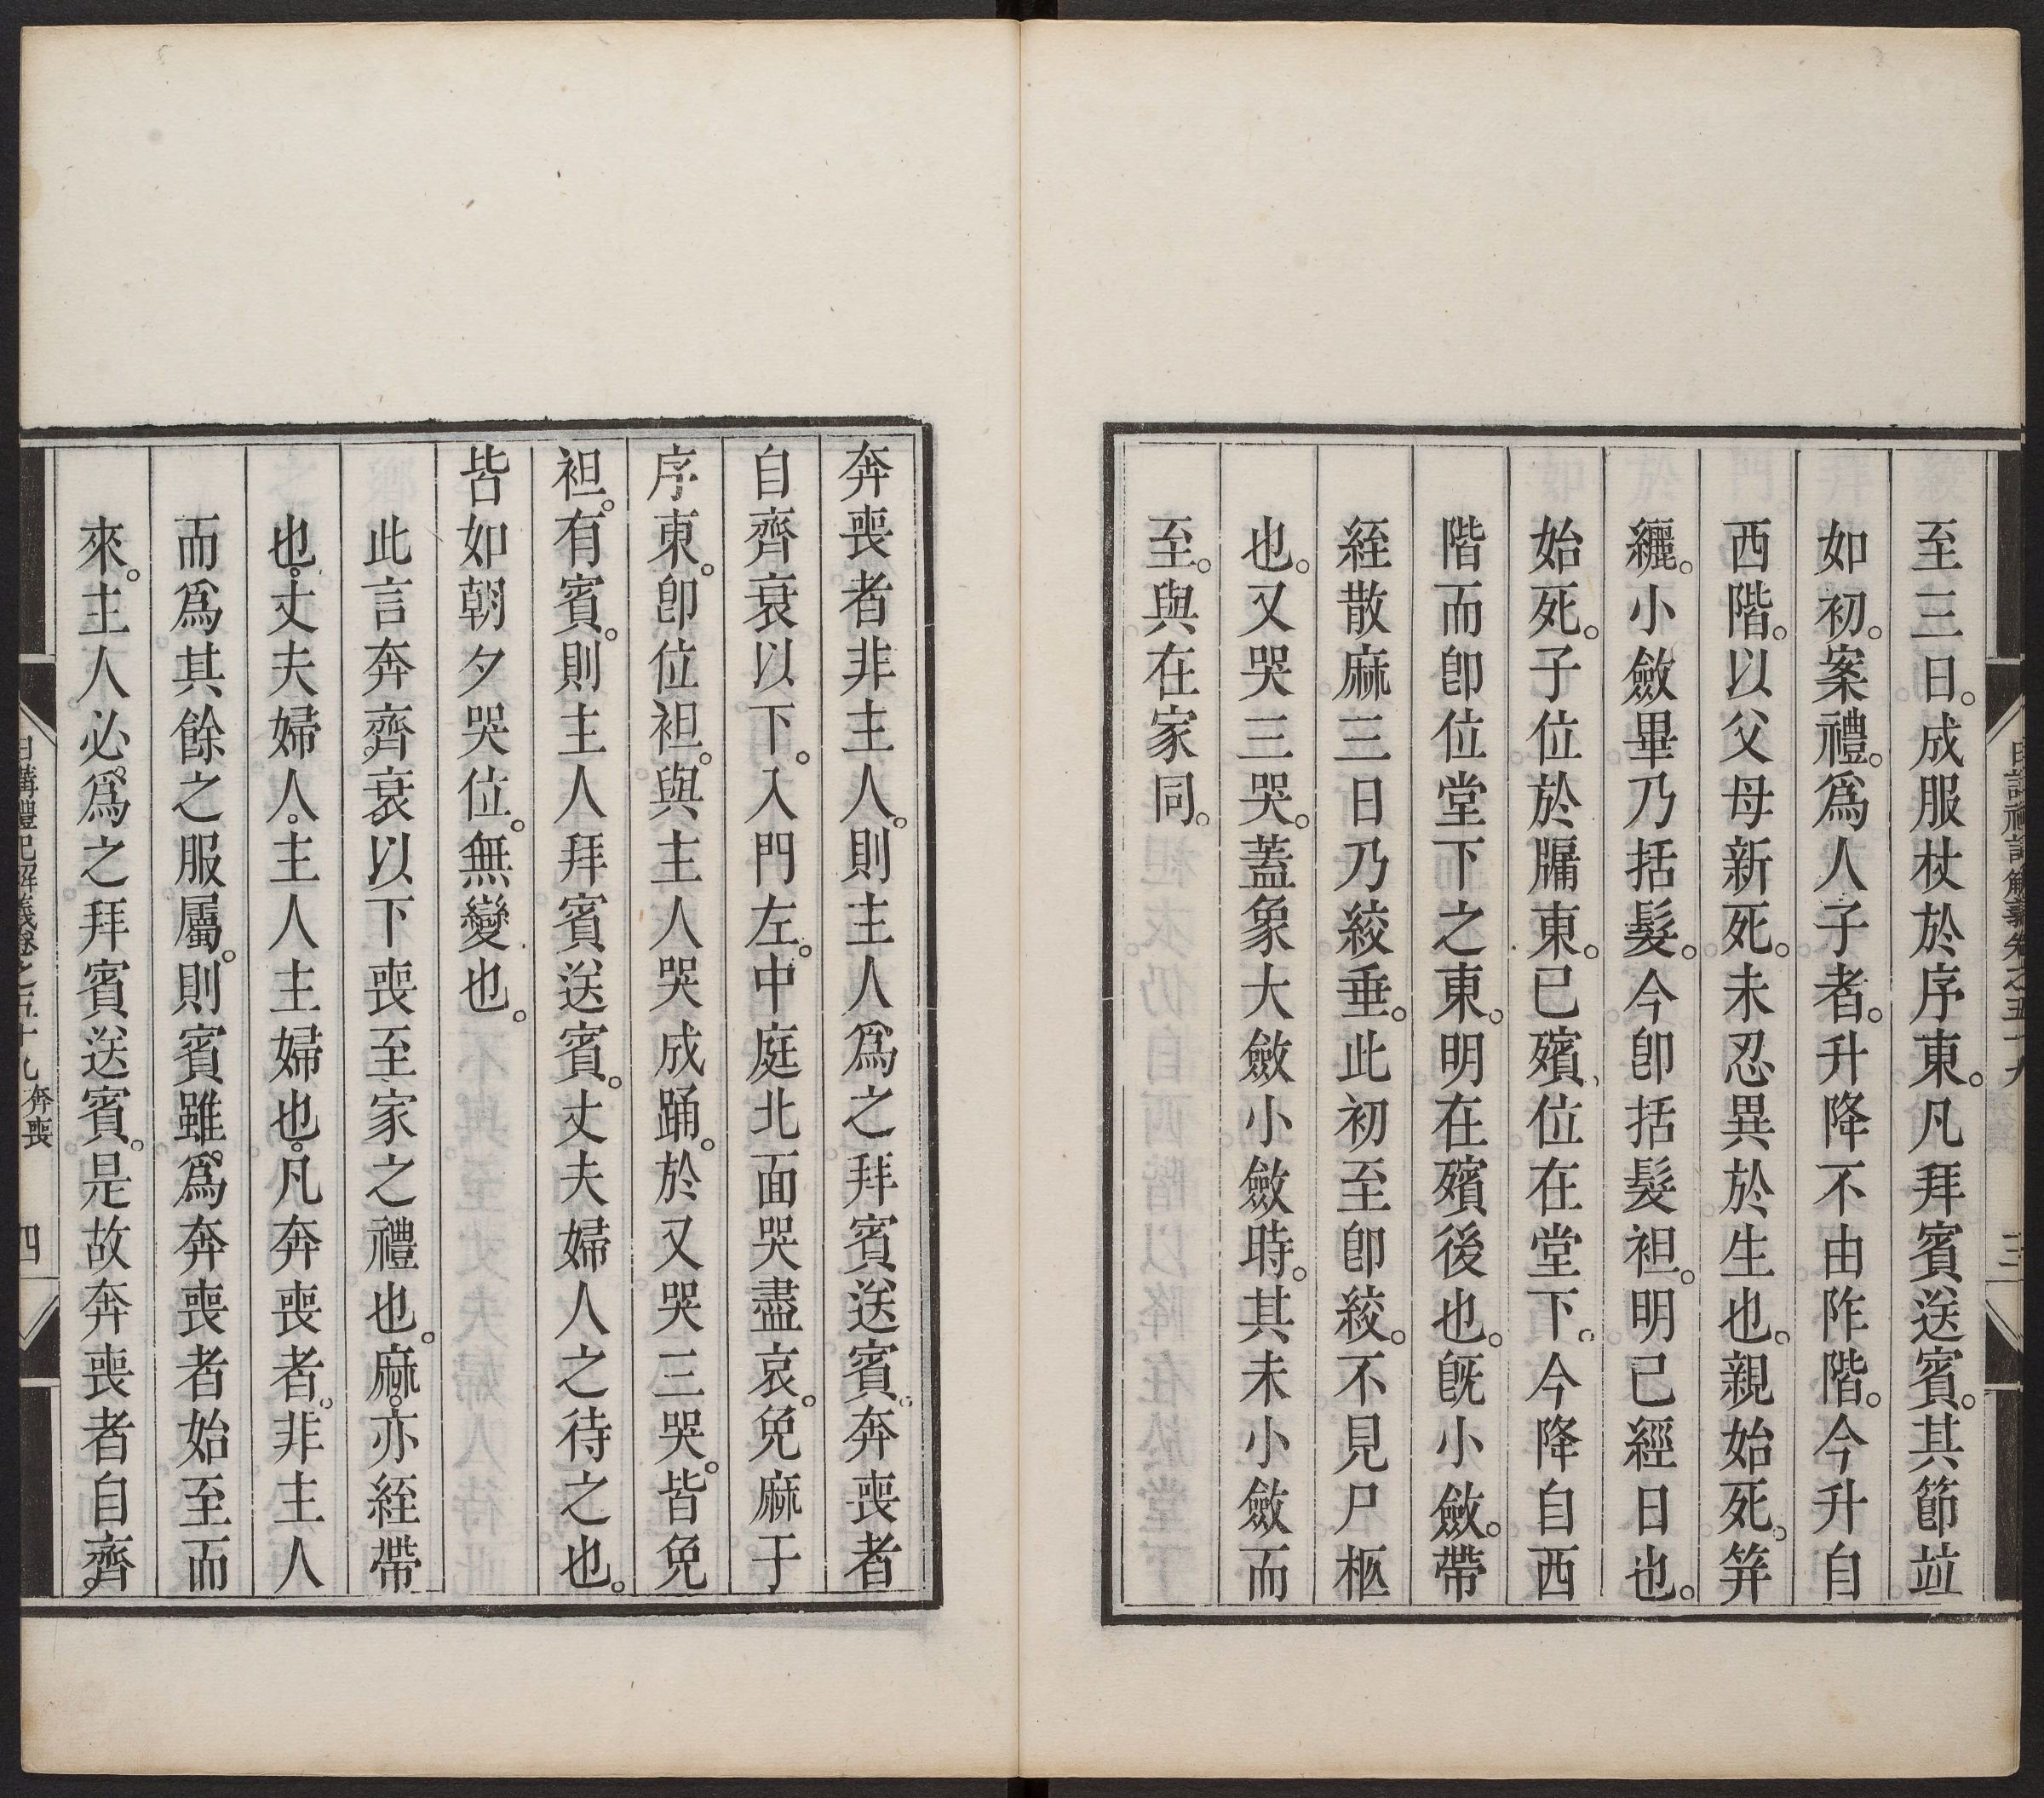 至三日。成服杖於序東。凡拜賓送賓。其節竝
如初。案禮。爲人子者。升降不由阼階。今升自
西階。以父母新死。未忍異於生也。親始死。笄
纚。小斂畢乃括髮。今卽括髮袒。明已經日也。
始死。子位於牖東。已殯、位在堂下。今降自西
階而卽位堂下之東。明在殯後也。旣小斂。帶
絰散麻三日乃絞垂。此初至卽絞。不見尸柩
也。又哭三哭。蓋象大斂小斂時。其未小斂而
至。與在家同。
日講禮記解義卷之五十九 三
奔喪者非主人。則主人爲之拜賓送賓。奔喪者
自齊衰以下。入門左。中庭北面哭盡哀。免麻于
序東。卽位袒。與主人哭成踊。於又哭三哭。皆免
袒。有賓。則主人拜賓送賓。丈夫婦人之待之也。
皆如朝夕哭位。無變也。
此言奔齊衰以下喪至家之禮也。麻。亦絰帶
也。丈夫婦人。主人主婦也。凡奔喪者。非主人
而爲其餘之服屬。則賓雖爲奔喪者始至而
來。主人必爲之拜賓送賓。是故奔喪者自齊
日講禮記解義卷之五十九 奔喪 四